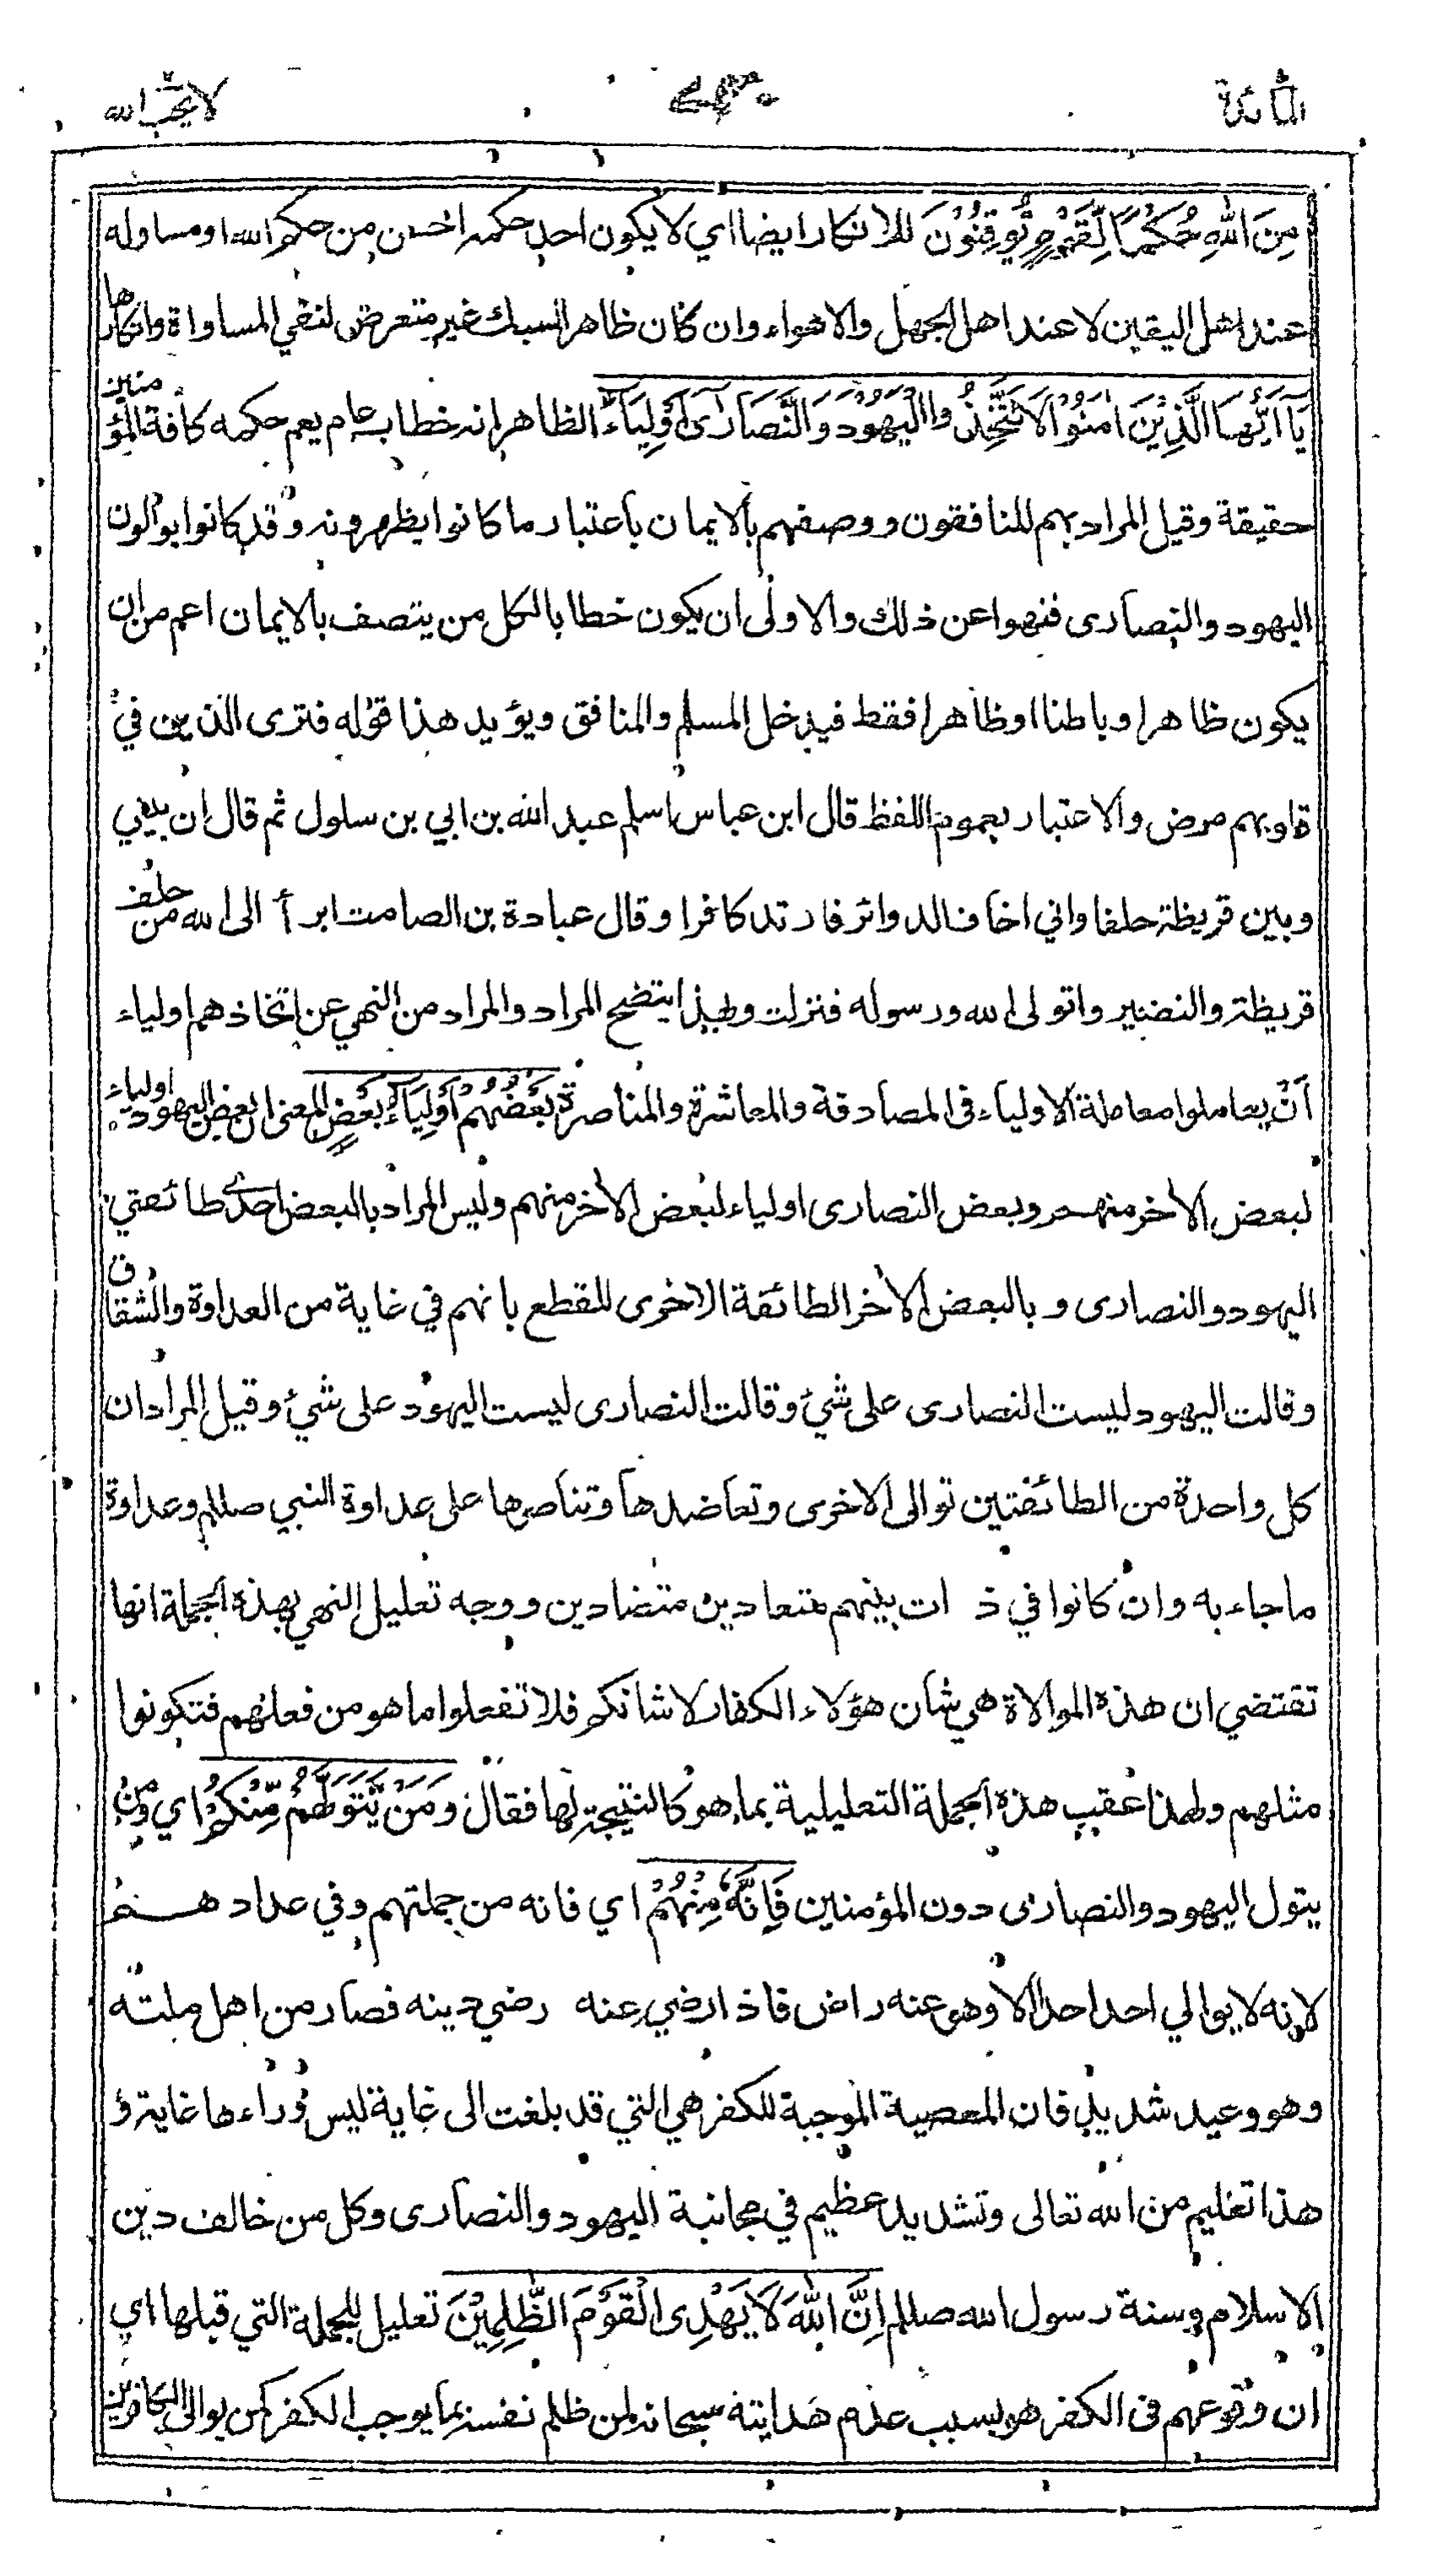 المائدة لا يحب الله
مِنَ اللهِ حُكْمًا لِّقَوْمٍ يُّوْقِنُوْنَ للانكار ايضا اي لا يكون احد حكمه احسن من حكم الله او مساو له
عند اهل اليقين لا عند اهل الجهل والاهواء وان كان ظاهر السبك غير متعرض لنفي المساواة وانكارها
يَآ اَيُّهَا الَّذِيْنَ اٰمَنُوْا لَا تَتَّخِذُوا الْيَهُوْدَ وَالنَّصَارٰى اَوْلِيَاءَ الظاهر انه خطاب عام يعم حكمه كافة المؤمنين
حقيقة وقيل المراد بهم المنافقون ووصفهم بالايمان باعتبار ما كانوا يظهرونه وقد كانوا يوالون
اليهود والنصارى فنهوا عن ذلك والاولى ان يكون خطابا لكل من يتصف بالايمان اعم من ان
يكون ظاهرا وباطنا او ظاهرا فقط فيدخل المسلم والمنافق ويؤيد هذا قوله فترى الذين في
قلوبهم مرض والاعتبار بعموم اللفظ قال ابن عباس اسلم عبد الله بن ابي بن سلول ثم قال ان بيني
وبين قريظة حلفا واني اخاف الدوائر فارتد كافرا وقال عبادة بن الصامت ابرأ الى الله من حلف
قريظة والنضير واتولى الله ورسوله فنزلت وبهذا يتضح المراد والمراد من النهي عن اتخاذهم اولياء
اَنْ يعاملوا معاملة الاولياء فى المصادقة والمعاشرة والمناصرة بَعْضُهُمْ اَوْلِيَاءُ بَعْضٍ المعنى ان بعض اليهود اولياء
لبعض الاخر منهم وبعض النصارى اولياء لبعض الاخر منهم وليس المراد بالبعض احدى طائفتي
اليهود والنصارى وبالبعض الاخر الطائفة الاخرى للقطع بانهم في غاية من العداوة والشقاق
وقالت اليهود ليست النصارى على شيء وقالت النصارى ليست اليهود على شيء وقيل المراد ان
كل واحدة من الطائفتين توالى الاخرى وتعاضدها وتناصرها على عداوة النبي صللم وعداوة
ما جاء به وان كانوا في ذات بينهم متعادين متضادين ووجه تعليل النهي بهذه الجملة انها
تقتضي ان هذه الموالاة هي شأن هؤلاء الكفار لا شانكم فلا تفعلوا ما هو من فعلهم فتكونوا
مثلهم ولهذا عقب هذه الجملة التعليلية بما هو كالنتيجة لها فقال وَمَنْ يَّتَوَلَّهُمْ مِّنْكُمْ اي ومن
يتول اليهود والنصارى دون المؤمنين فَاِنَّهٗ مِنْهُمْ اي فانه من جملتهم وفي عدادهم
لانه لا يوالي احد احدا الا وهو عنه راض فاذا رضي عنه رضي دينه فصار من اهل ملته
وهو وعيد شديد فان المعصية الموجبة للكفر هي التي قد بلغت الى غاية ليس وراءها غاية و
هذا تعليم من الله تعالى وتشديد عظيم في مجانبة اليهود والنصارى وكل من خالف دين
الاسلام وسنة رسول الله صللم اِنَّ اللهَ لَا يَهْدِى الْقَوْمَ الظّٰلِمِيْنَ تعليل للجملة التي قبلها اي
ان وقوعهم فى الكفر هو بسبب عدم هدايته سبحانه لمن ظلم نفسه بما يوجب الكفر كمن يوالى الكافرين